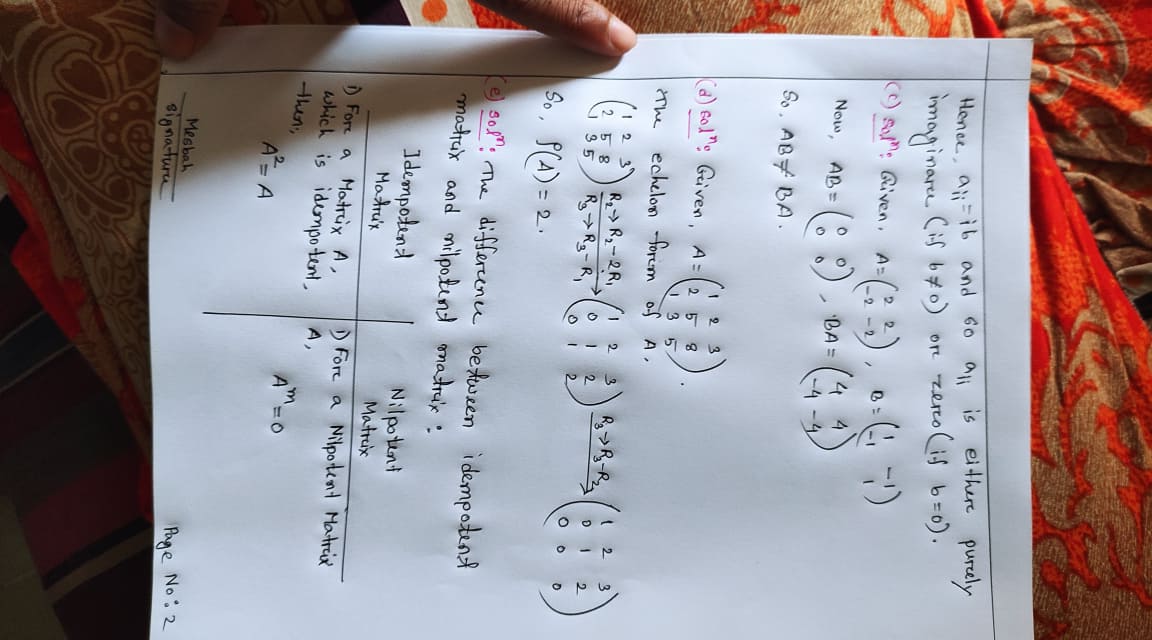 Hence, aⱼⱼ = ib and so aⱼⱼ is eithere purcely
imaginarce (if b≠0) orc zerco (if b=0).
(c) solⁿ: Given, A = (2 2; -2 -2), B = (1 -1; -1 1)
Now, AB = (0 0; 0 0), BA = (4 4; -4 -4)
So, AB ≠ BA.
(d) solⁿ: Given, A = (1 2 3; 2 5 8; 1 3 5).
The echelon forcm of A,
(1 2 3; 2 5 8; 1 3 5) R₂→R₂-2R₁ R₃→R₃-R₁ (1 2 3; 0 1 2; 0 1 2) R₃→R₃-R₂ (1 2 3; 0 1 2; 0 0 0)
So, ρ(A) = 2.
(e) solⁿ: The differcence between idempotent
matrcix and nilpotent matrcix :
Idempotent
Matrcix
Nilpotent
Matrcix
i) Forc a Matrcix A,
which is idempotent,
then,
A² = A
i) Forc a Nilpotent Matrcix
A,
Aᵐ = 0
Mesbah
signature
Page No: 2